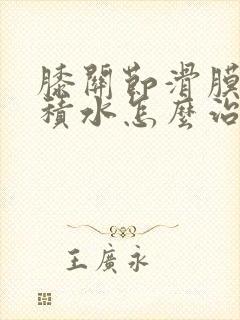 膝關節滑膜
積水怎麼治
王廣永